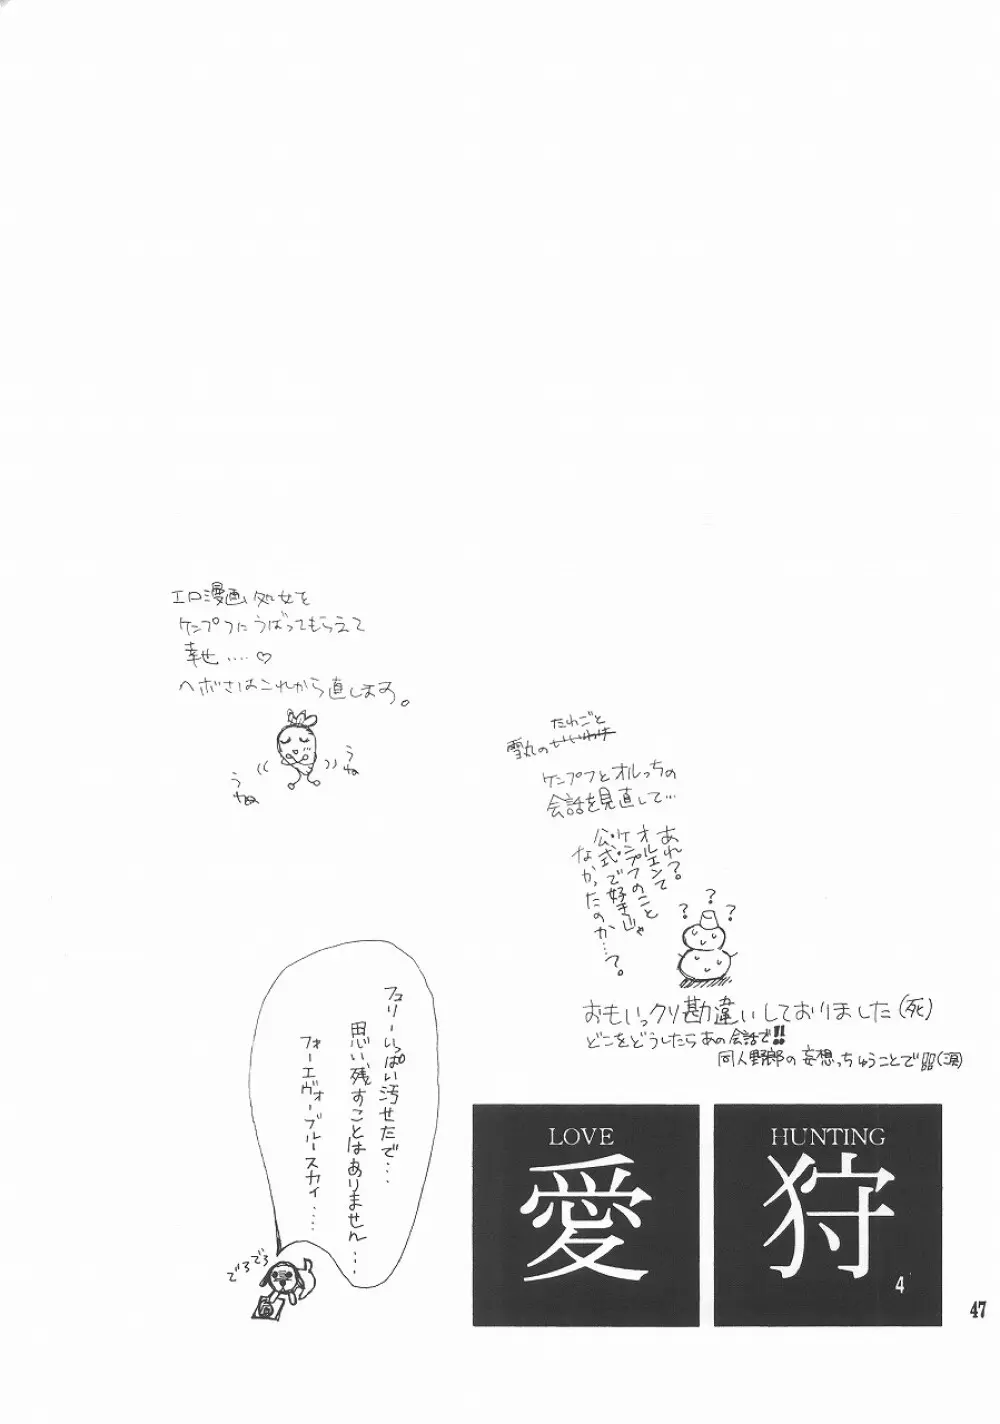 エロ漫画処女を
ケンプフにうばってもらえて
幸せ....♡
ヘボさはこれから直します。
うね
うね
雪丸の
たわごと
ケンプフとオルっちの
会話を見直して...
あれ？
オルエンて
ケンプフのこと
公式で好きじゃ
なかったのか...？。
？
？
？
おもいっクソ勘違いしておりました(死)
どこをどうしたらあの会話で!!
同人野郎の妄想っちゅうことで(涙)
フェリーいっぱい汚せたで...
思い残すことはありません...
フォーエヴォーブルースカイ....
でろでろ
LOVE
愛
HUNTING
狩
4
47